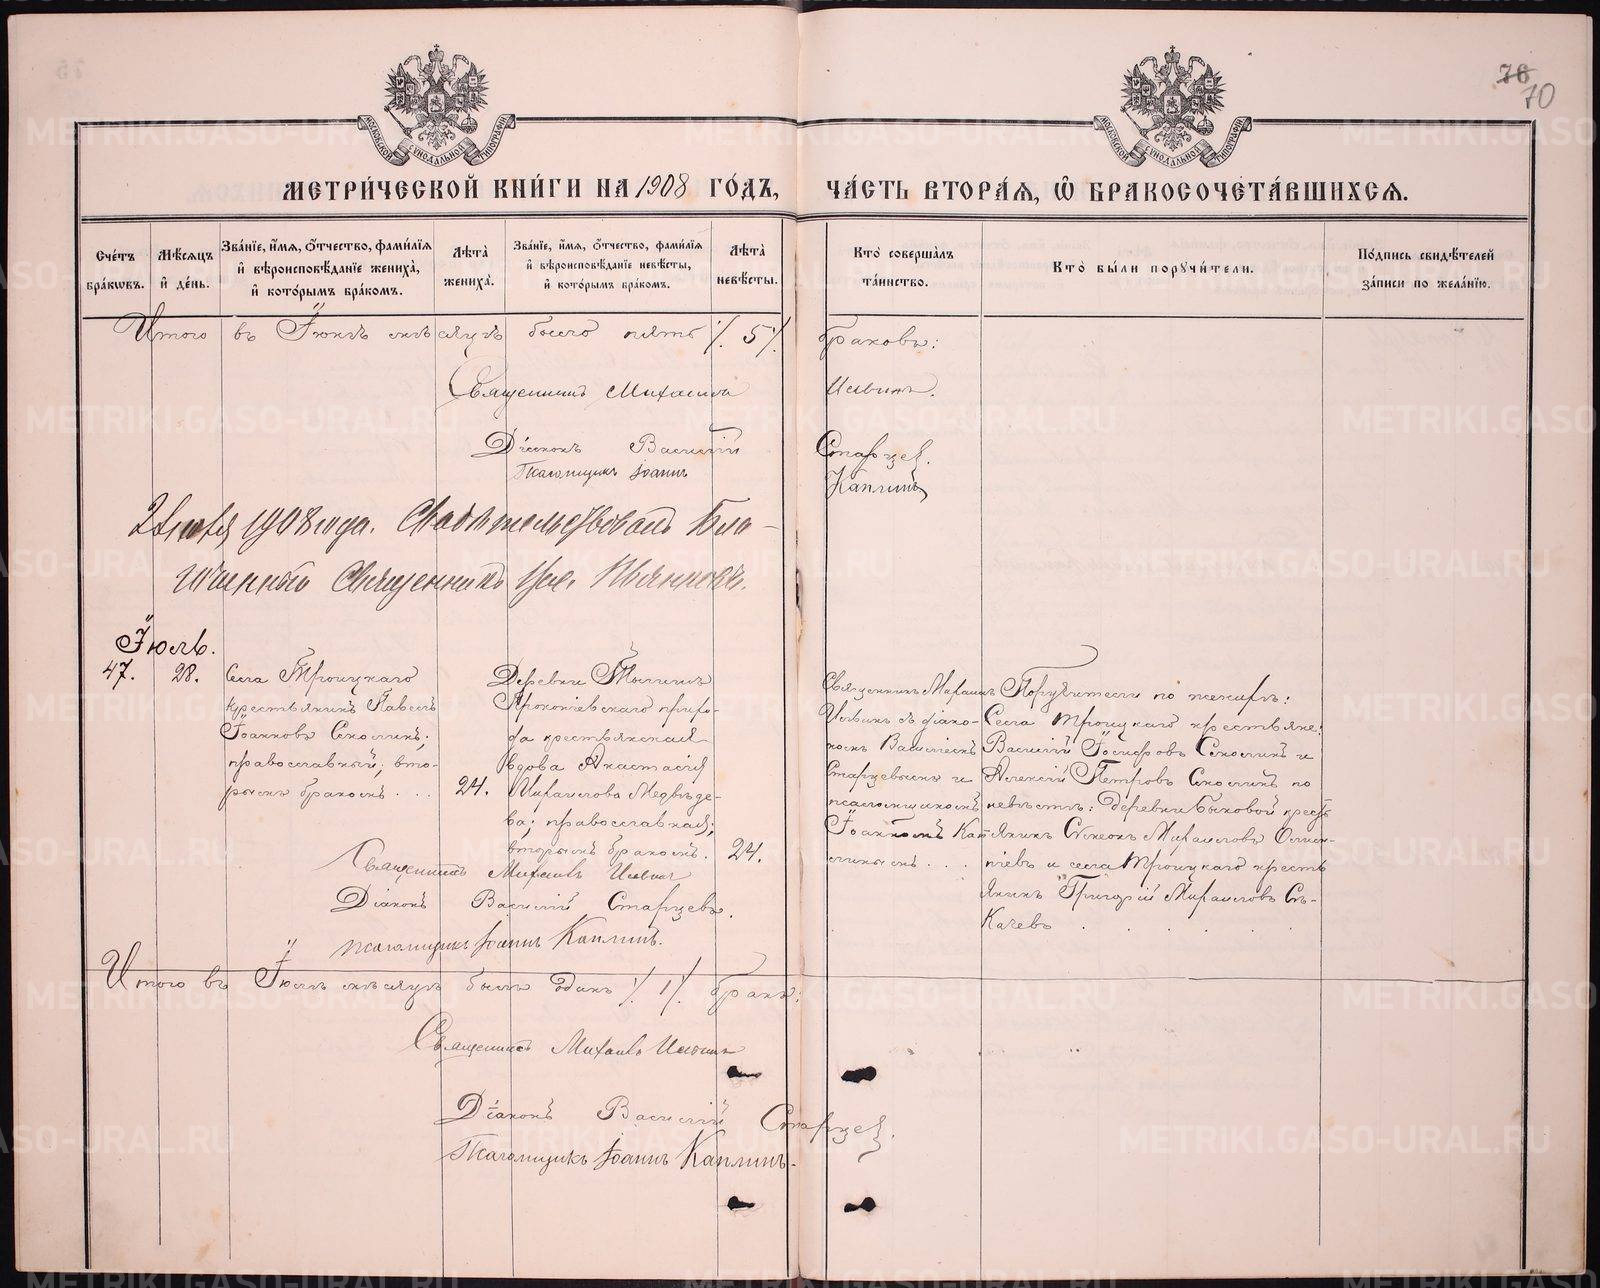 76
70
МОСКОВСКОЙ СѴНОДАЛЬНОЙ ТИПОГРАФІИ
МОСКОВСКОЙ СѴНОДАЛЬНОЙ ТИПОГРАФІИ
МЕТРИ́ЧЕСКОЙ КНИ́ГИ НА 1908 ГО́ДЪ, ЧА́СТЬ ВТОРА́Я, Ѿ БРАКОСОЧЕТА́ВШИХСЯ.
Сче́тъ бра́кѡвъ.
Мѣ́сяцъ и҆ де́нь.
Зва́нїе, и҆́мя, ѻ҆́тчество, фами́лїя и҆ вѣроисповѣ́данїе жениха̀, и҆ кото́рымъ бра́комъ.
Лѣ́та жениха̀.
Зва́нїе, и҆́мя, ѻ҆́тчество, фами́лїя и҆ вѣроисповѣ́данїе невѣ́сты, и҆ кото́рымъ бра́комъ.
Лѣ́та невѣ́сты.
Кто̀ соверша́лъ та́инство.
Кто̀ бы́ли поручи́тели.
По́дпись свидѣ́телей за́писи по жела́нїю.
Итого въ Іюнѣ мѣсяцѣ было пять ٪ 5 ٪ браковъ:
Священникъ Михаилъ Ильинъ.
Діаконъ Василій Старцев.
Псаломщикъ Іоаннъ Каплинъ
1908 года. Свидѣтельствовалъ Бла-
гочинный Священникъ
Іюль.
47. 28.
Села Троицкаго
крестьянинъ Павелъ
Іоанновъ Смолинъ;
православный; вто-
рымъ бракомъ . . . 24.
Деревни
Прокопіевскаго прихо-
да крестьянская
вдова Анастасія
Михаилова Медвѣде-
ва; православная;
вторымъ бракомъ. 24.
Священникъ Михаилъ
Ильинъ съ діако-
номъ Василіемъ
Старцевымъ и
псаломщикомъ
Іоанномъ Кап-
линымъ . . .
Поручители по женихѣ:
Села Троицкаго крестьяне:
Василій Іосифовъ Смолинъ и
Алексій Петровъ Смолинъ по
невѣстѣ: деревни Быковой кресть
янинъ Симеонъ Михаиловъ
и села Троицкаго кресть
янинъ Григорій Михаиловъ
Священникъ Михаилъ Ильинъ
Діаконъ Василій Старцевъ.
Псаломщикъ Іоаннъ Каплинъ.
Итого въ Іюлѣ мѣсяцѣ былъ одинъ ٪ 1 ٪ бракъ:
Священникъ Михаилъ Ильинъ
Діаконъ Василій Старцев.
Псаломщикъ Іоаннъ Каплинъ.
METRIKI.GASO-URAL.RU